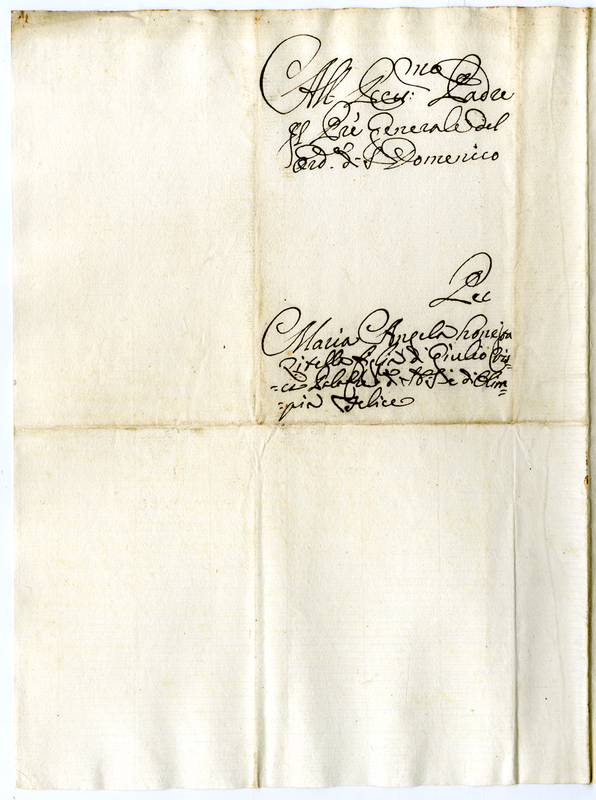 All Ecc:mo Padre
Il Prē Generale del
Ord.e di S Domenico
Per
Maria Angela honesta
Zitella figlia di Giulio
di Olim=
=pia Felice